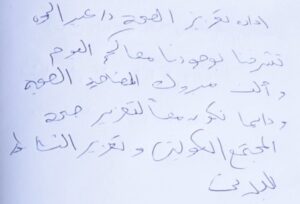 ادارة تعزيز الصحة
تشرفنا بوجودنا معاكم اليوم
وألف مبروك المفاهيم الصحية
ودايما نكون معاً لتعزيز صحة
المجتمع الكويتي وتعزيز النشاط
البدني